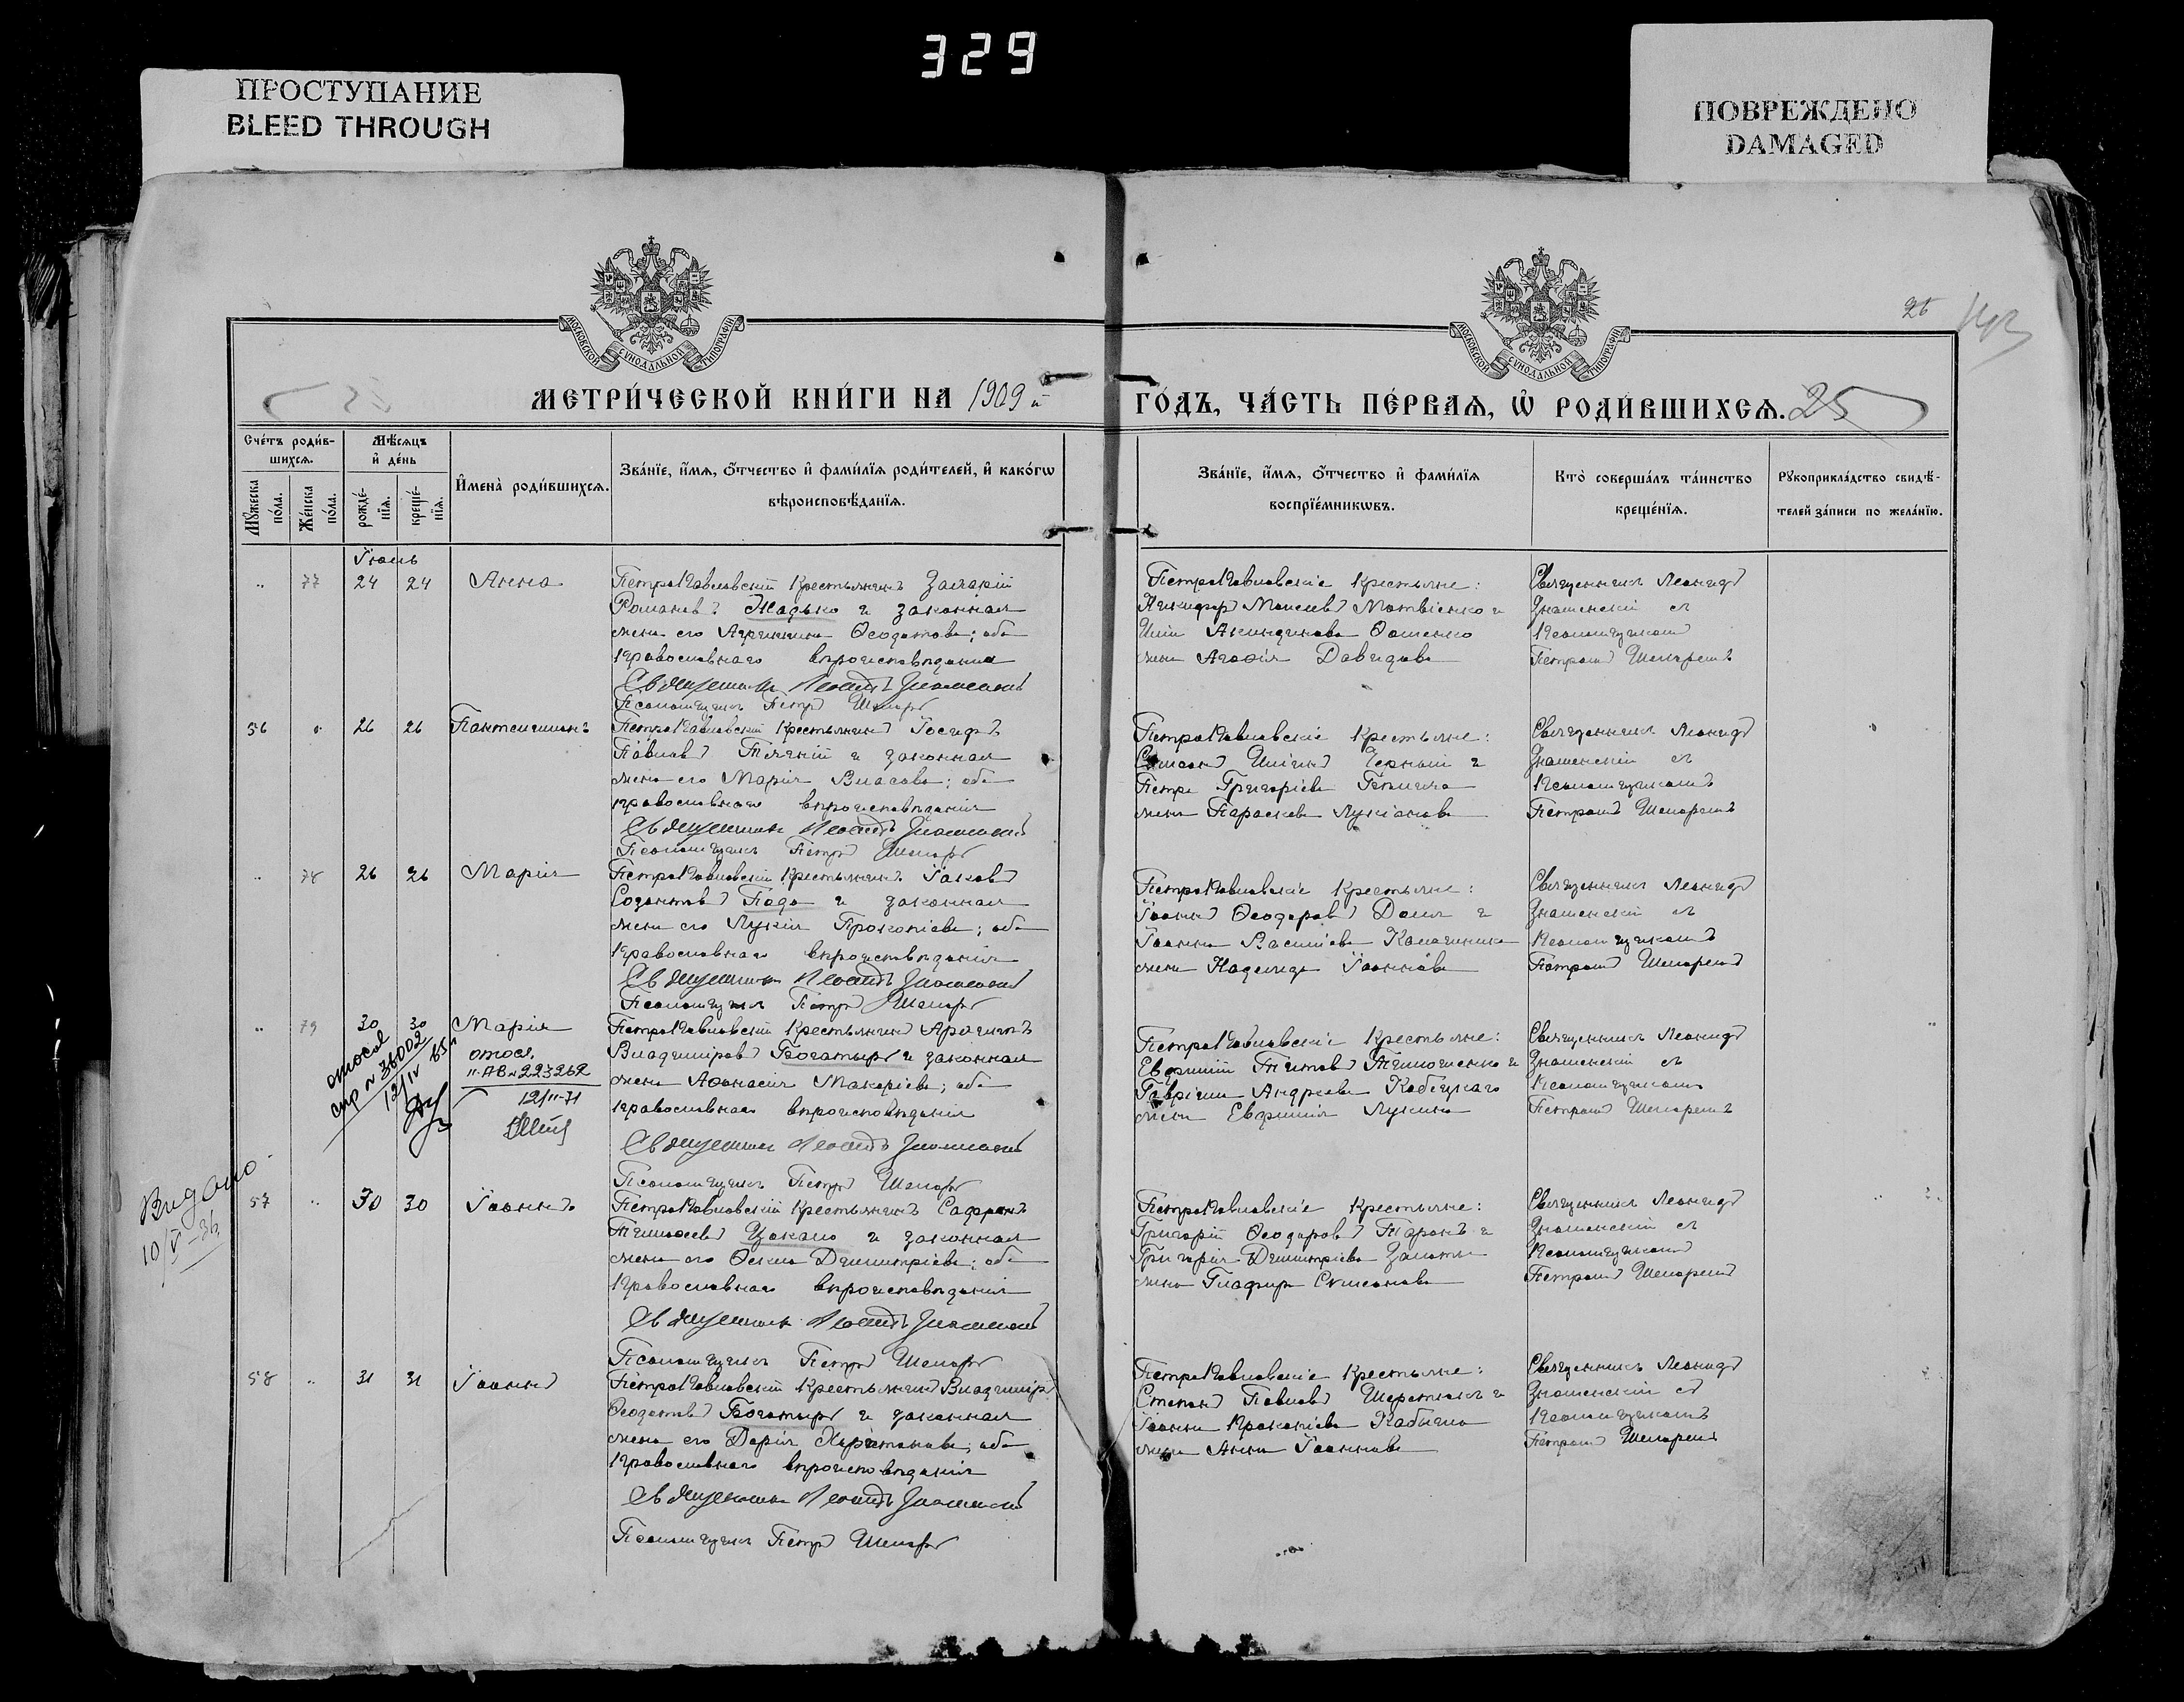 329
ПРОСТУПАНИЕ
BLEED THROUGH
ПОВРЕЖДЕНО
DAMAGED
МОСКОВСКОЙ СѴНОДАЛЬНОЙ ТИПОГРАФІИ
МОСКОВСКОЙ СѴНОДАЛЬНОЙ ТИПОГРАФІИ
26
МЕТРИ́ЧЕСКОЙ КНИ́ГИ НА 1909 й
ГО́ДЪ, ЧА́СТЬ ПЕ́РВАѦ, Ѡ҆ РОДИ́ВШИХСѦ. 25
Сче́тъ роди́в-
шихсѧ.
Мꙋ́жеска по́ла.
Же́нска по́ла.
Мѣ́сѧцъ и҆ де́нь
рожде́-нїѧ.
креще́-нїѧ.
И҆мена̀ роди́вшихсѧ.
Зва́нїе, и҆́мѧ, ѻ҆́тчество и҆ фами́лїѧ роди́телей, и҆ како́гѡ
вѣроисповѣ́данїѧ.
Зва́нїе, и҆́мѧ, ѻ҆́тчество и҆ фами́лїѧ
воспрїе́мникѡвъ.
Кто̀ соверша́лъ та́инство
креще́нїѧ.
Рꙋкоприкла́дство свидѣ́-
телей за́писи по жела́нїю.
Іюль
" 77 24 24 Анна
ПетроПавловскій крестьянинъ Захарій
Романовъ Жадько и законная
жена его Агриппина Ѳеодотова; оба
православнаго вѣроисповѣданія
Священникъ Леонидъ Знаменскій
Псаломщикъ Петръ
ПетроПавловскіе крестьяне:
Никифоръ Моисеевъ Матвіенко и
Акиндинова
жена Агафія Давидова
Священникъ Леонидъ
Знаменскій съ
Псаломщикомъ
Петромъ
56 " 26 26 Пантелиимонъ
ПетроПавловскій крестьянинъ Іосифъ
Павловъ и законная
жена его Марія Власова; оба
православнаго вѣроисповѣданія
Священникъ Леонидъ Знаменскій
Псаломщикъ Петръ
ПетроПавловскіе крестьяне:
Симеонъ Черный и
Петра Григоріева
жена Параскева Лукіанова
Священникъ Леонидъ
Знаменскій съ
Псаломщикомъ
Петромъ
" 78 26 26 Марія
ПетроПавловскій крестьянинъ Іаковъ
и законная
жена его Лукія Прокопіева; оба
православнаго вѣроисповѣданія
Священникъ Леонидъ Знаменскій
Псаломщикъ Петръ
ПетроПавловскіе крестьяне:
Іоаннъ Ѳеодоровъ Доля и
Іоанна Василіева
жена Надежда Іоаннова
Священникъ Леонидъ
Знаменскій съ
Псаломщикомъ
Петромъ
" 79 30 30 Марія
12/IV 65
II-АВ № 223262
12/II-71
ПетроПавловскій крестьянинъ
Владиміровъ Богатырь и законная
жена Аѳанасія Макаріева; оба
православнаго вѣроисповѣданія
Священникъ Леонидъ Знаменскій
Псаломщикъ Петръ
ПетроПавловскіе крестьяне:
Евфимій Титовъ Тимошенко и
Гавріила Андреева Кобецкаго
жена Евфимія Лукина
Священникъ Леонидъ
Знаменскій съ
Псаломщикомъ
Петромъ
Видано
10/V-36
57 " 30 30 Іоаннъ
ПетроПавловскій крестьянинъ
Тимофеевъ Цокало и законная
жена его Димитріева; оба
православнаго вѣроисповѣданія
Священникъ Леонидъ Знаменскій
Псаломщикъ Петръ
ПетроПавловскіе крестьяне:
Григорій Ѳеодоровъ Таранъ и
Григорія Димитріева
жена Глафира Симеонова
Священникъ Леонидъ
Знаменскій съ
Псаломщикомъ
Петромъ
58 " 31 31 Іоаннъ
ПетроПавловскій крестьянинъ Владиміръ
Ѳеодотовъ Богатырь и законная
жена его Дарія Харитонова; оба
православнаго вѣроисповѣданія
Священникъ Леонидъ Знаменскій
Псаломщикъ Петръ
ПетроПавловскіе крестьяне:
Степанъ Павловъ и
Іоанна Прокопіева
жена Анна Іоаннова
Священникъ Леонидъ
Знаменскій съ
Псаломщикомъ
Петромъ